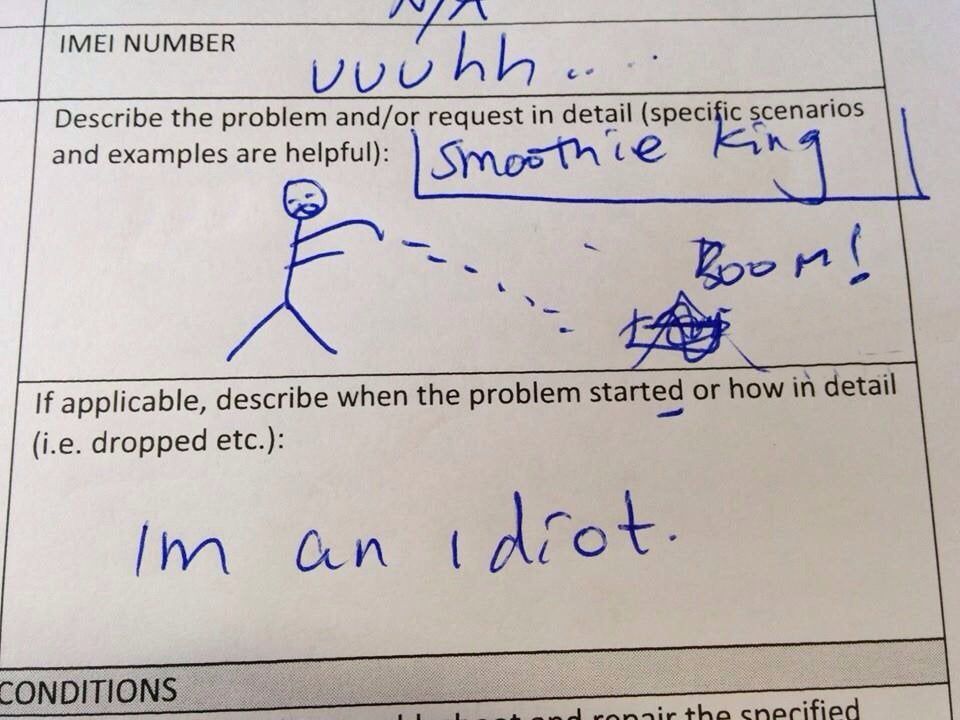 N/A
IMEI NUMBER
uuuhh.....
Describe the problem and/or request in detail (specific scenarios
and examples are helpful):
smoothie king
Boom!
If applicable, describe when the problem started or how in detail
(i.e. dropped etc.):
Im an idiot.
CONDITIONS
and repair the specified